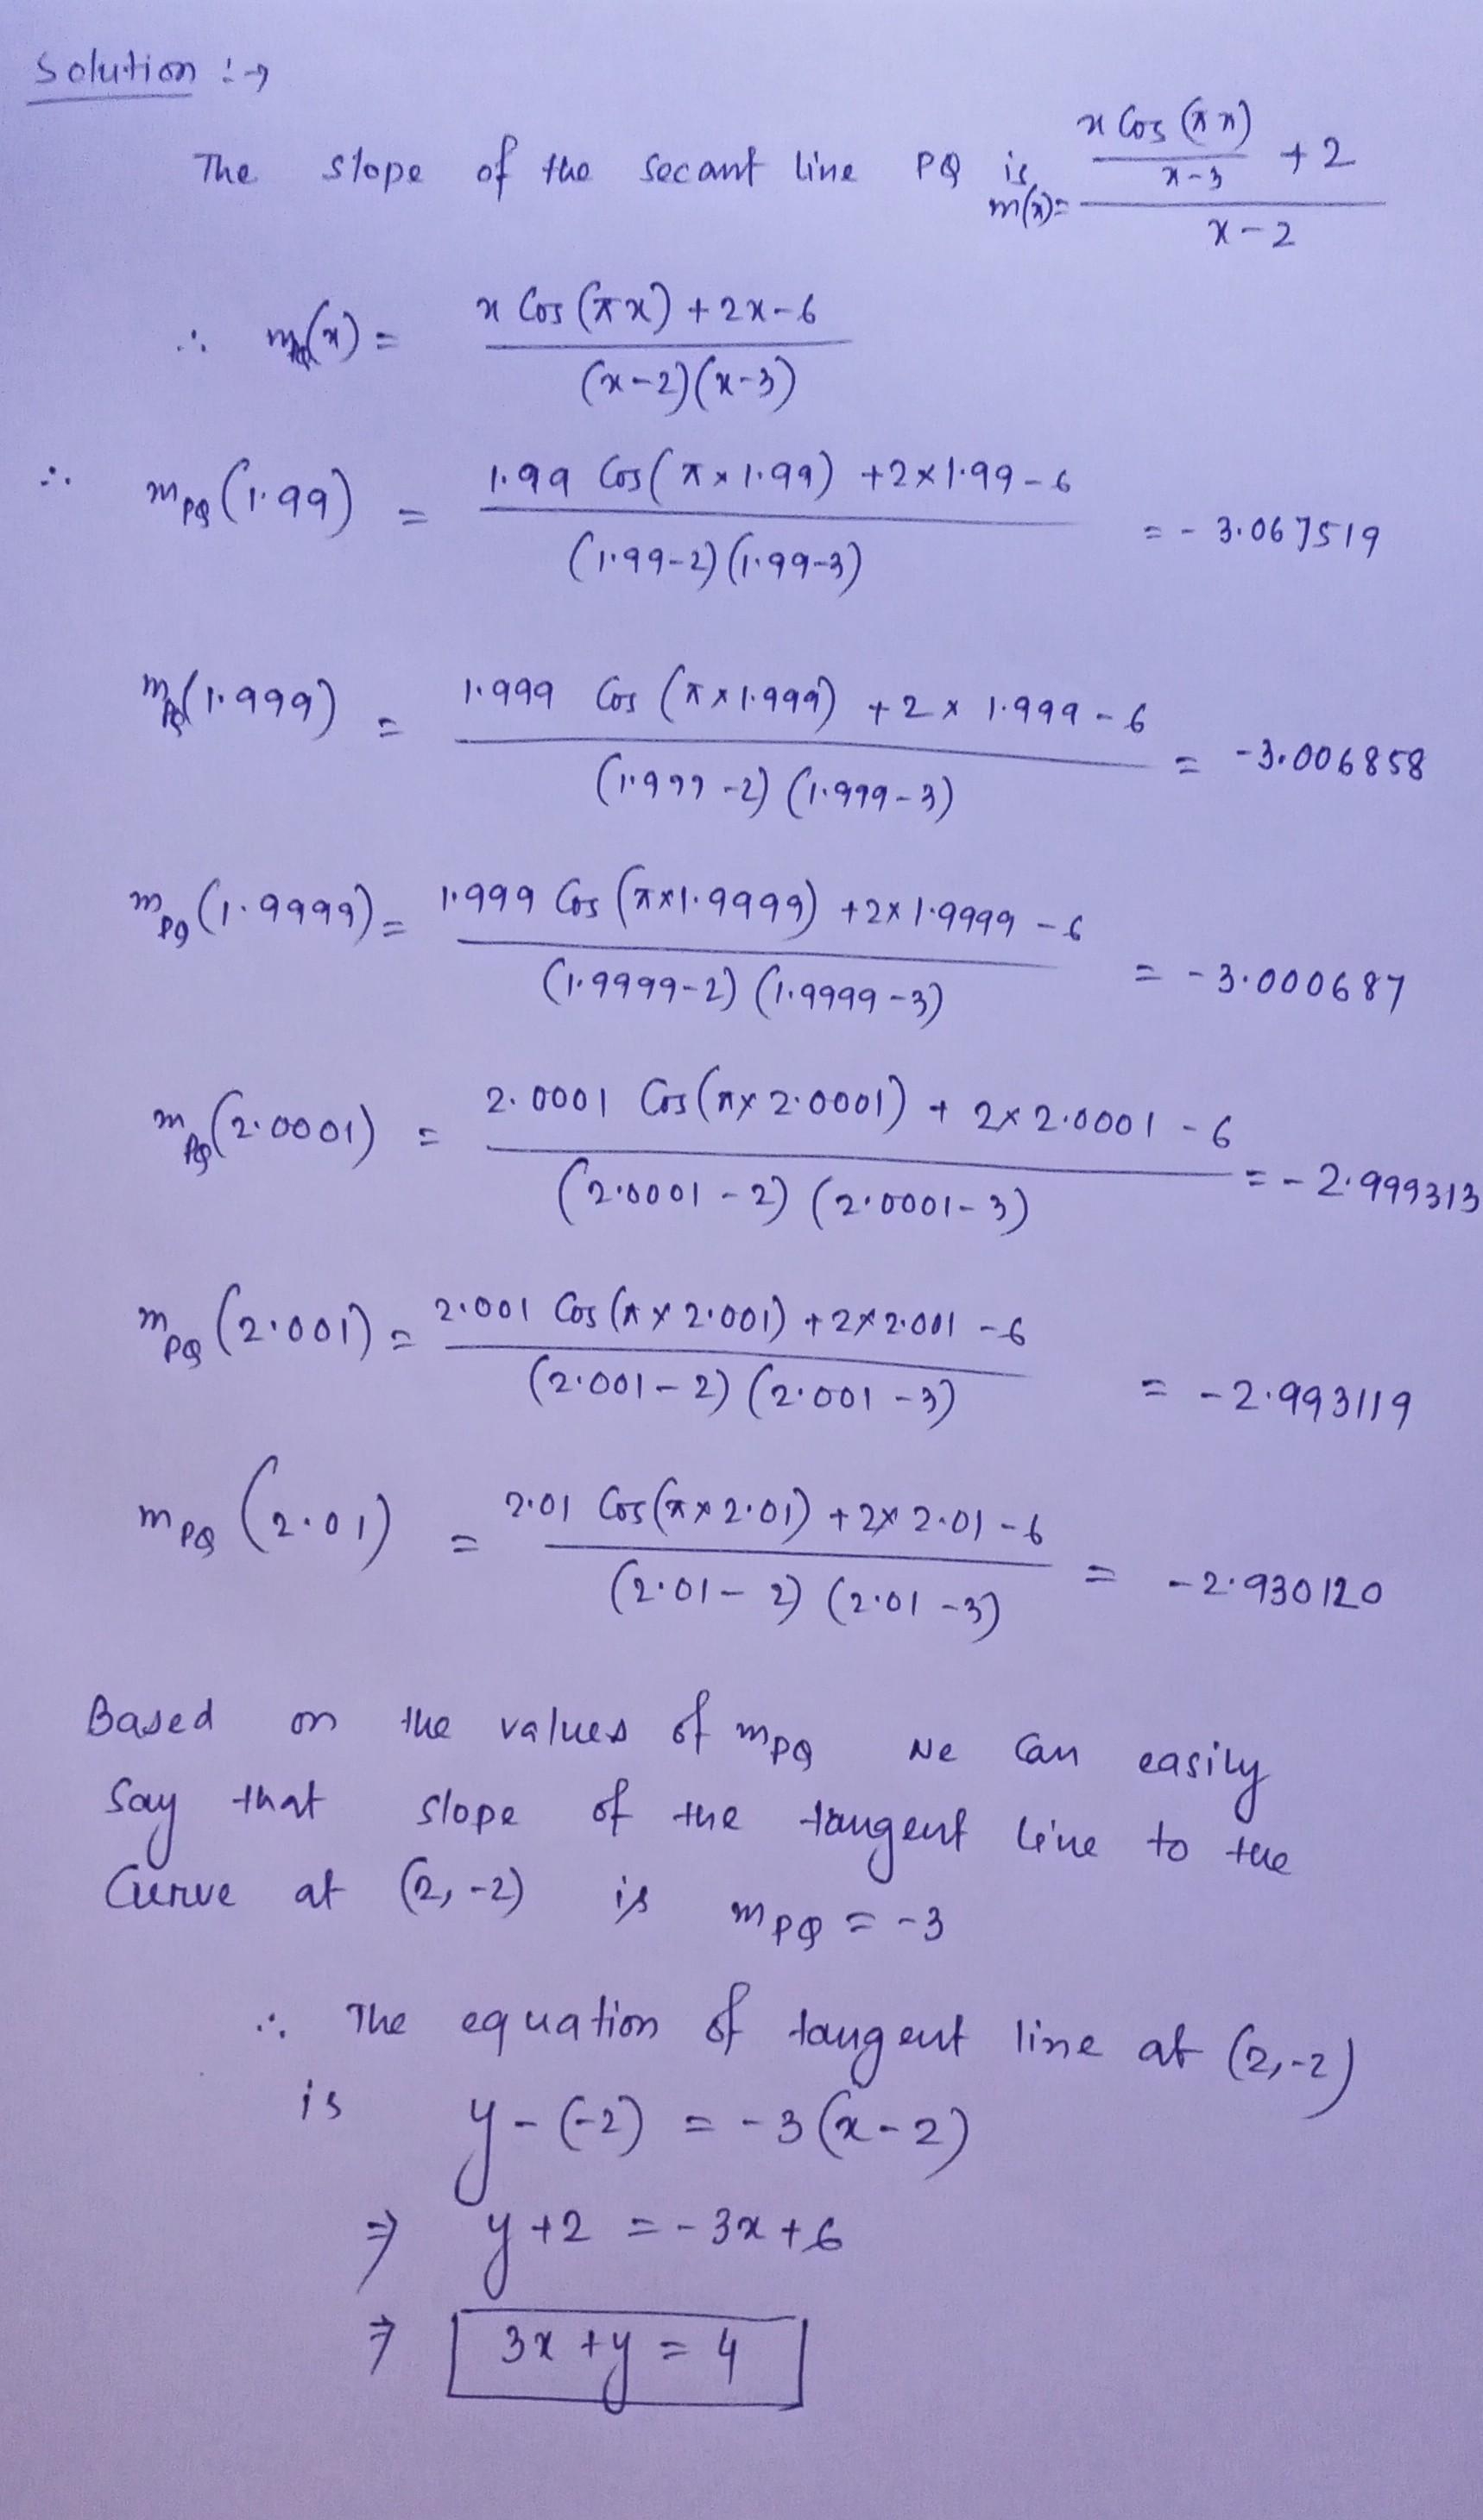 Solution :→
The slope of the secant line PQ is m(x) = (x Cos (πx)/(x-3) + 2)/(x-2)
∴ m_PQ(x) = (x Cos (πx) + 2x-6)/((x-2)(x-3))
∴ m_PQ (1.99) = (1.99 Cos(π×1.99) +2×1.99-6)/((1.99-2)(1.99-3)) = -3.067519
m_PQ(1.999) = (1.999 Cos (π×1.999) +2×1.999-6)/((1.999-2)(1.999-3)) = -3.006858
m_PQ (1.9999) = (1.999 Cos (π×1.9999) +2×1.9999-6)/((1.9999-2)(1.9999-3)) = -3.000687
m_PQ(2.0001) = (2.0001 Cos(π×2.0001) + 2×2.0001-6)/((2.0001-2)(2.0001-3)) = -2.999313
m_PQ (2.001) = (2.001 Cos(π×2.001) +2×2.001-6)/((2.001-2)(2.001-3)) = -2.993119
m_PQ (2.01) = (2.01 Cos(π×2.01) +2×2.01-6)/((2.01-2)(2.01-3)) = -2.930120
Based on the values of m_PQ we can easily
say that slope of the tangent line to the
Curve at (2,-2) is m_PQ = -3
∴ The equation of tangent line at (2,-2)
is y-(-2) = -3(x-2)
⇒ y+2 = -3x+6
⇒ 3x+y = 4